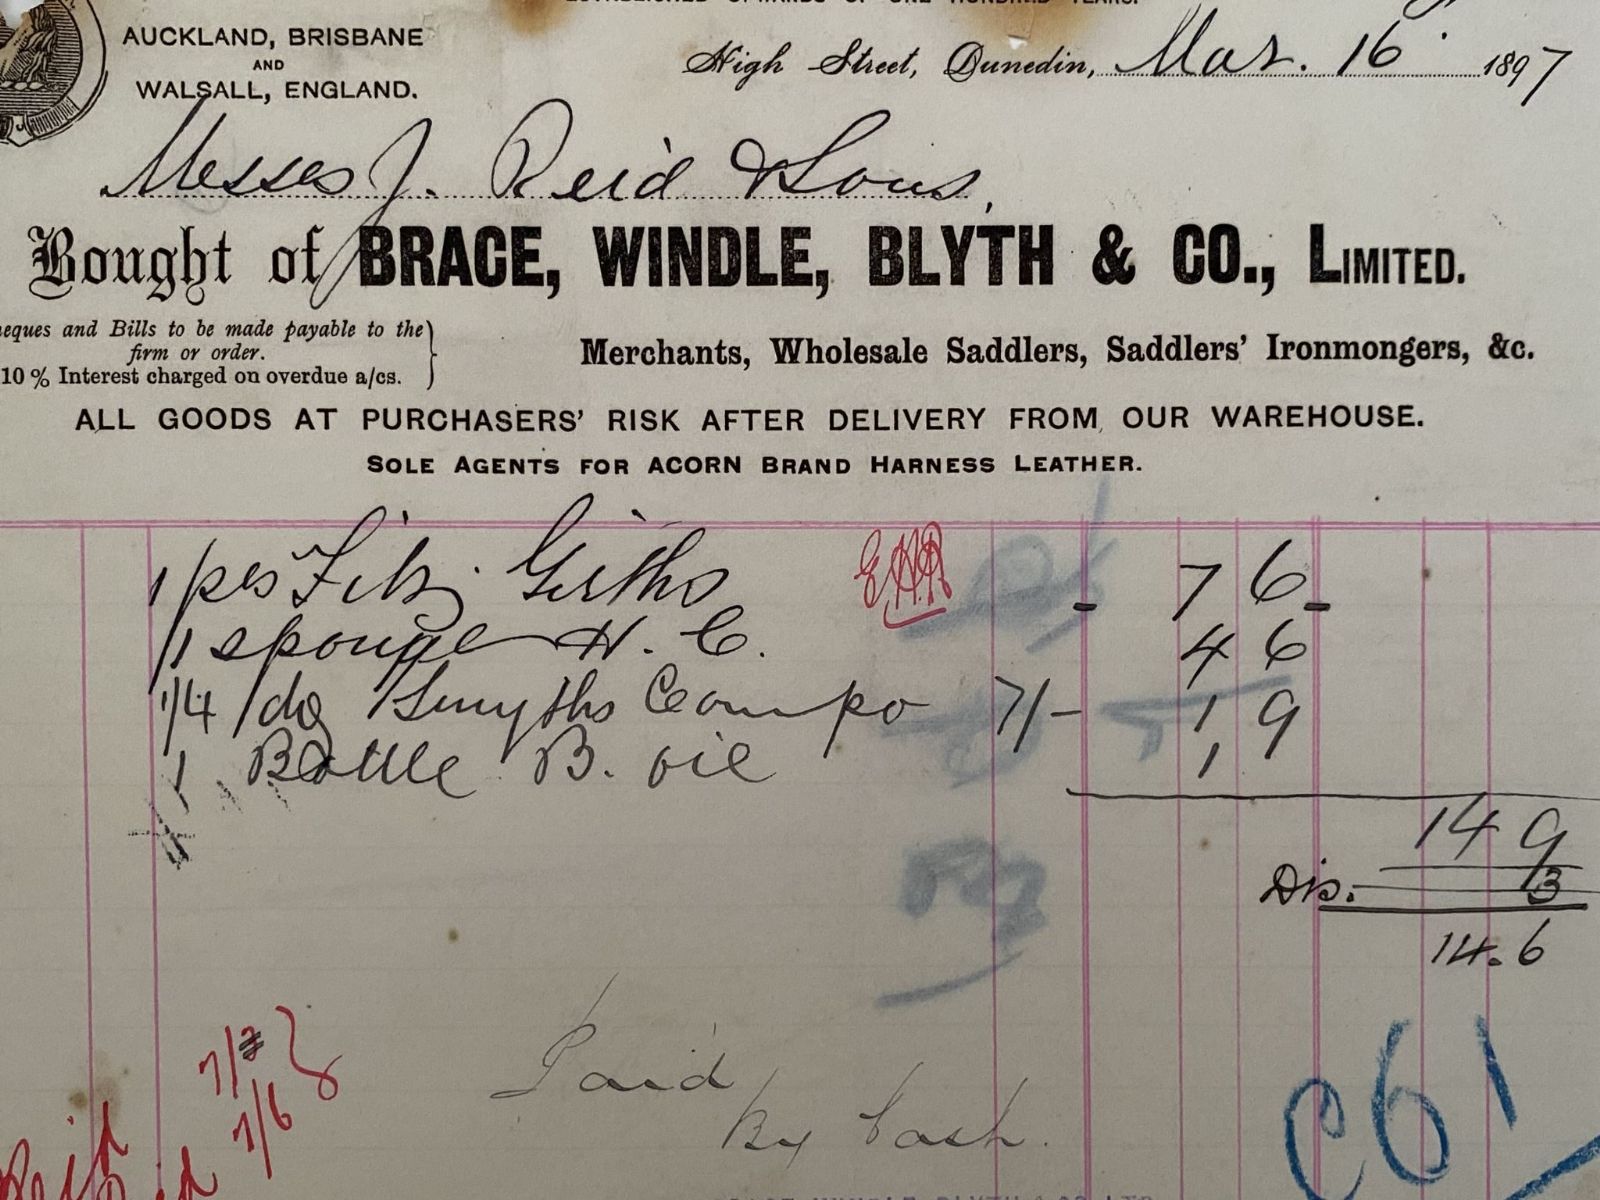 ESTABLISHED UPWARDS OF ONE HUNDRED YEARS.
AUCKLAND, BRISBANE
AND
WALSALL, ENGLAND.
High Street, Dunedin, Mar. 16 1897
Messrs J. Reid & Sons,
Bought of BRACE, WINDLE, BLYTH & CO., LIMITED.
eques and Bills to be made payable to the
firm or order.
10% Interest charged on overdue a/cs.
Merchants, Wholesale Saddlers, Saddlers' Ironmongers, &c.
ALL GOODS AT PURCHASERS' RISK AFTER DELIVERY FROM OUR WAREHOUSE.
SOLE AGENTS FOR ACORN BRAND HARNESS LEATHER.
1 pes Fitz. Girths EHR - 7 6 -
1 sponge H. C. 4 6
1/4 dz Smyths Compo 7/- 1 9
1 Bottle B. oil 1
14 9
Dis. 3
14.6
7/3
7/6
Paid
By Cash.
C61
Reid